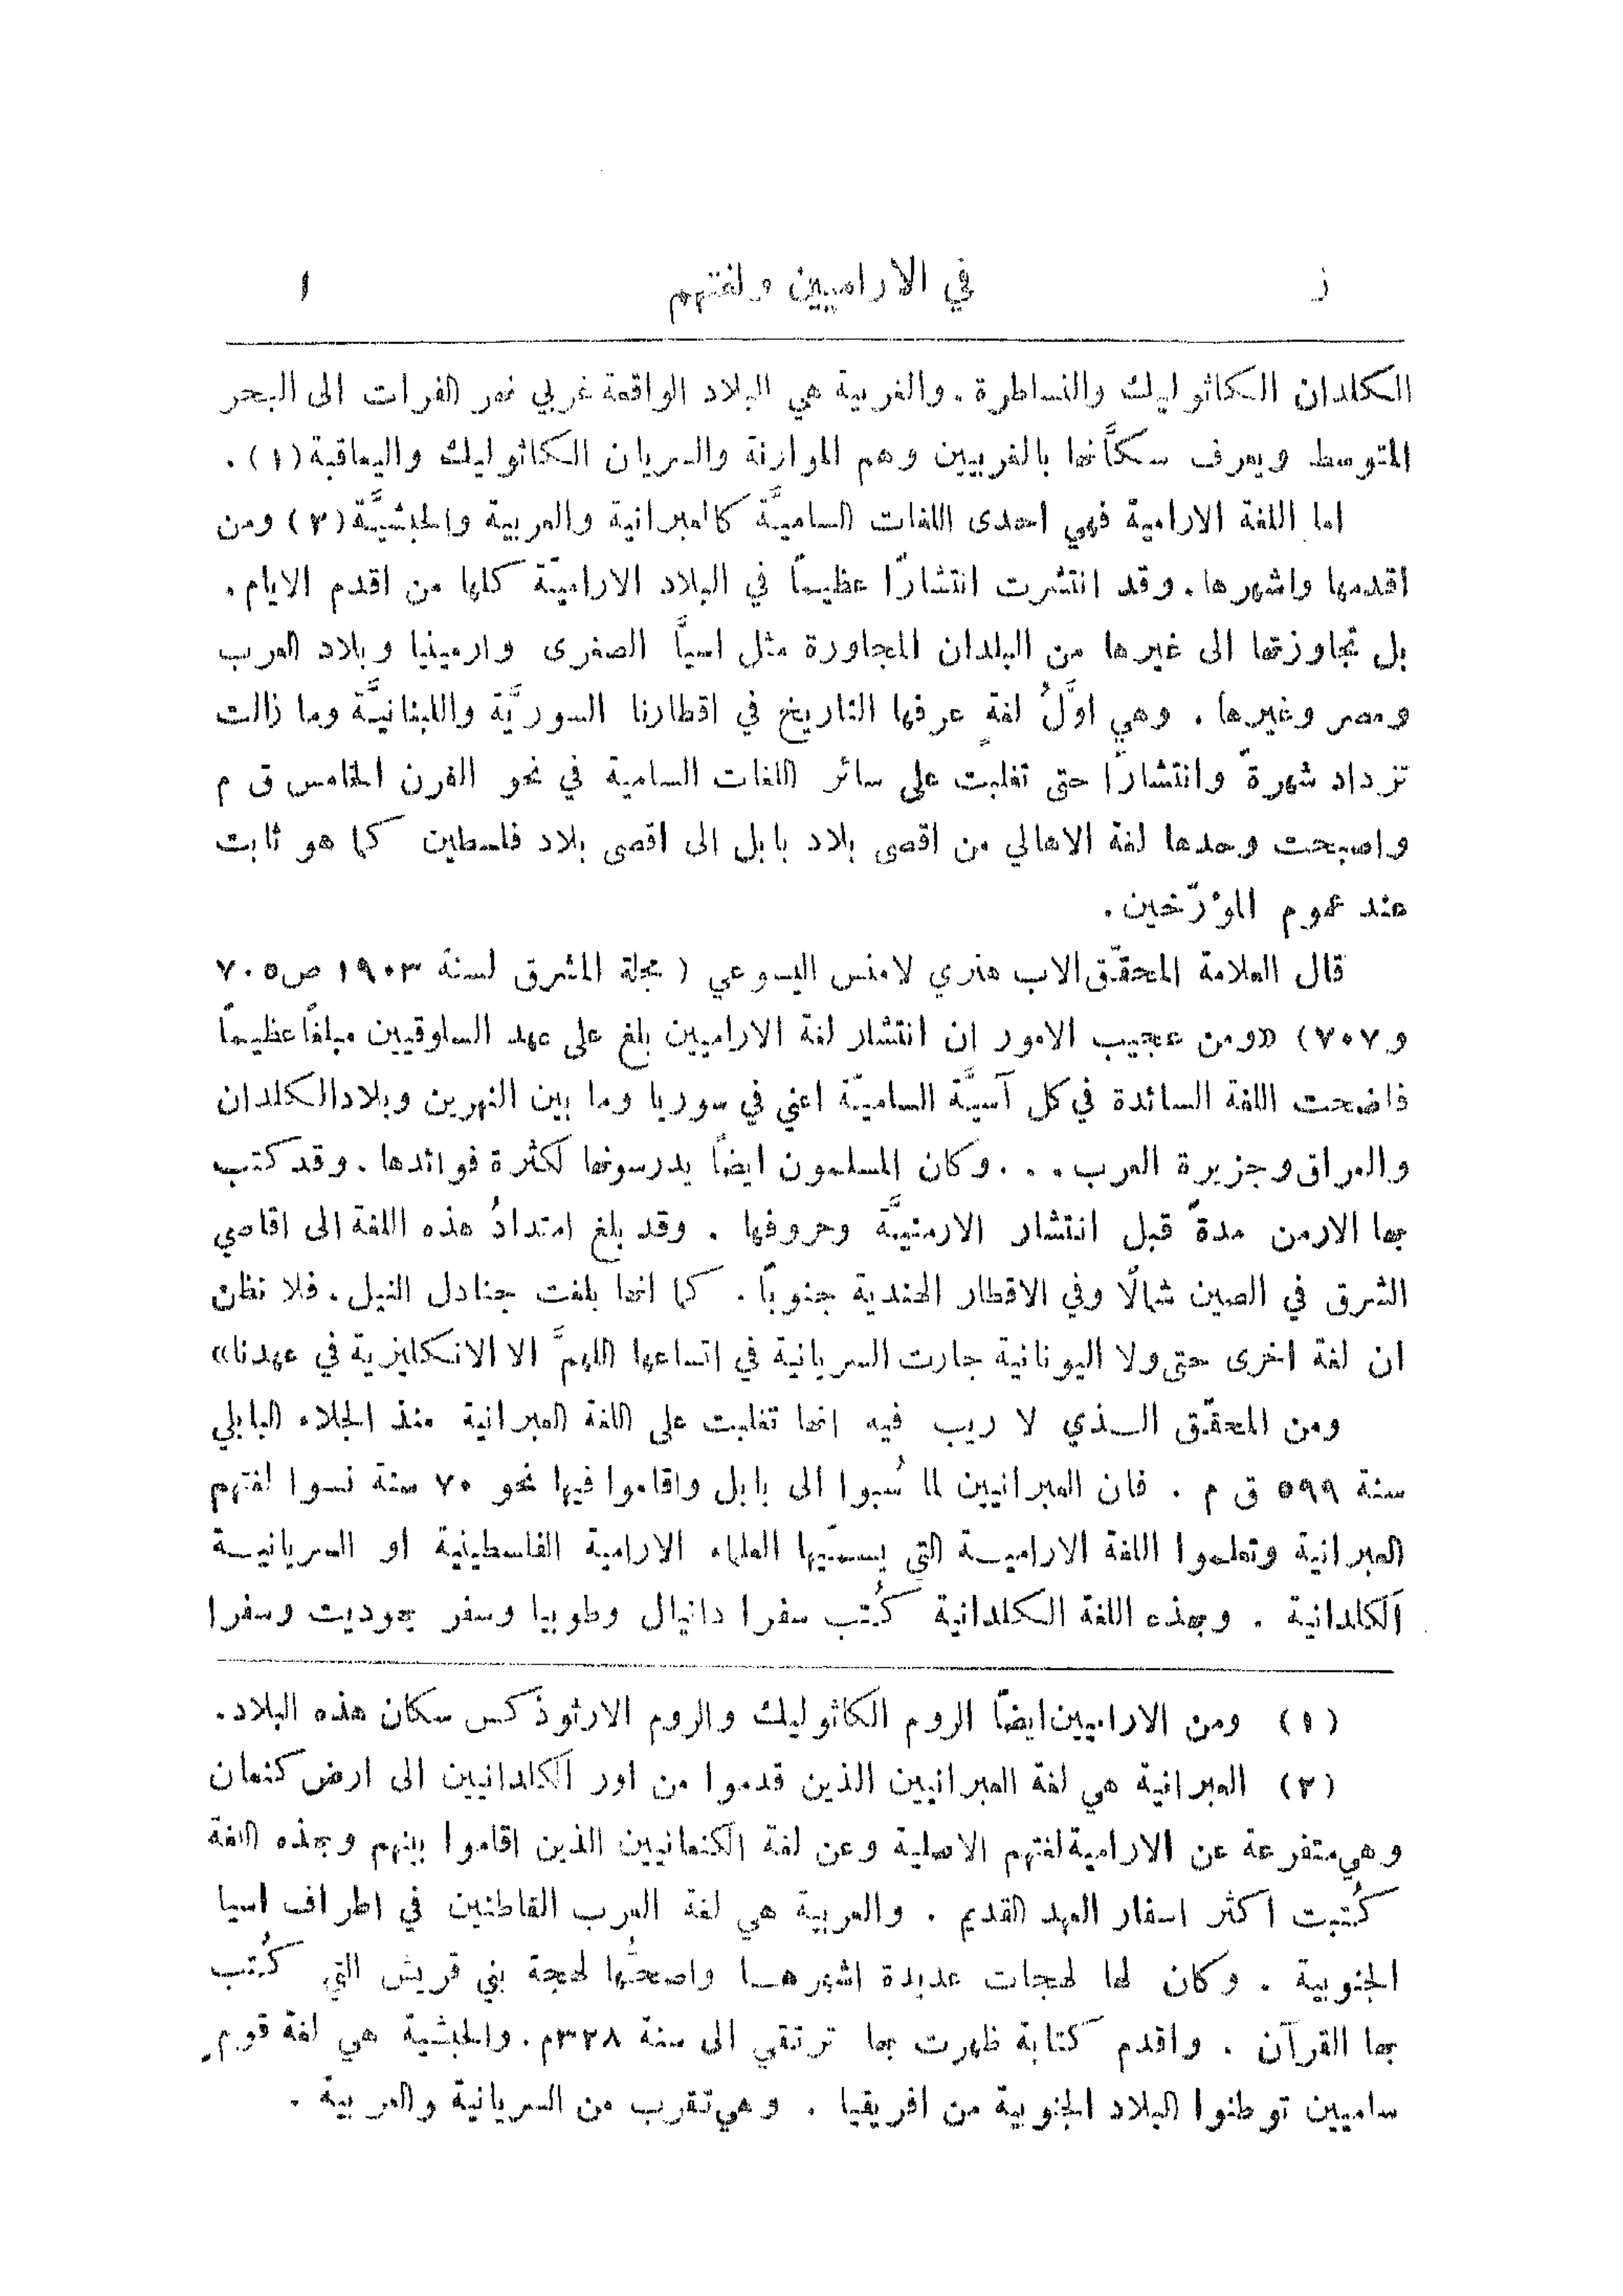 ز في الاراميين ولغتهم ١
الكلدان الكاثوليك والنساطرة. والغربية هي البلاد الواقعة غربي نهر الفرات الى البحر
المتوسط ويعرف سكَّانها بالغربيين وهم الموارنة والسريان الكاثوليك واليعاقبة (١) .
اما اللغة الارامية فهي احدى اللغات الساميَّة كالعبرانية والعربية والحبشيَّة (٢) ومن
اقدمها واشهرها. وقد انتشرت انتشارًا عظيمًا في البلاد الاراميَّة كلها من اقدم الايام.
بل تجاوزتها الى غيرها من البلدان المجاورة مثل اسيَّا الصغرى وارمينيا وبلاد العرب
ومصر وغيرها . وهي اوَّلُ لغةٍ عرفها التاريخ في اقطارنا السوريَّة واللبنانيَّة وما زالت
تزداد شهرةً وانتشارًا حتى تغلبت على سائر اللغات السامية في نحو القرن الخامس ق م
واصبحت وحدها لغة الاهالي من اقصى بلاد بابل الى اقصى بلاد فلسطين كما هو ثابت
عند عموم المؤرّخين .
قال العلامة المحقّق الاب هنري لامنس اليسوعي ( مجلة المشرق لسنة ١٩٠٣ ص ٧٠٥
و ٧٠٧) «ومن عجيب الامور ان انتشار لغة الاراميين بلغ على عهد السلوقيين مبلغًا عظيمًا
فاضحت اللغة السائدة في كل آسيَّة الساميّة اعني في سوريا وما بين النهرين وبلاد الكلدان
والعراق وجزيرة العرب . . . وكان المسلمون ايضًا يدرسونها لكثرة فوائدها . وقد كتب
بها الارمن مدةً قبل انتشار الارمنيَّة وحروفها . وقد بلغ امتدادُ هذه اللغة الى اقاصي
الشرق في الصين شمالًا وفي الاقطار الهندية جنوبًا . كما انها بلغت جنادل النيل . فلا نظن
ان لغة اخرى حتى ولا اليونانية جارت السريانية في اتساعها اللهمَّ الا الانكليزية في عهدنا»
ومن المحقّق الذي لا ريب فيه انها تغلبت على اللغة العبرانية منذ الجلاء البابلي
سنة ٥٩٩ ق م . فان العبرانيين لما سُبوا الى بابل واقاموا فيها نحو ٧٠ سنة نسوا لغتهم
العبرانية وتعلموا اللغة الارامية التي يسمّيها العلماء الارامية الفلسطينية او السريانية
الكلدانية . وبهذه اللغة الكلدانية كُتب سفرا دانيال وطوبيا وسفر يهوديت وسفرا
(١) ومن الاراميين ايضًا الروم الكاثوليك والروم الارثوذكس سكان هذه البلاد.
(٢) العبرانية هي لغة العبرانيين الذين قدموا من اور الكلدانيين الى ارض كنعان
وهي متفرعة عن الارامية لغتهم الاصلية وعن لغة الكنعانيين الذين اقاموا بينهم وبهذه اللغة
كُتبت اكثر اسفار العهد القديم . والعربية هي لغة العرب القاطنين في اطراف اسيا
الجنوبية . وكان لها لهجات عديدة اشهرها واصحُّها لهجة بني قريش التي كُتب
بها القرآن . واقدم كتابة ظهرت بها ترتقي الى سنة ٣٢٨م. والحبشية هي لغة قومٍ
ساميين توطنوا البلاد الجنوبية من افريقيا . وهي تقرب من السريانية والعربية .